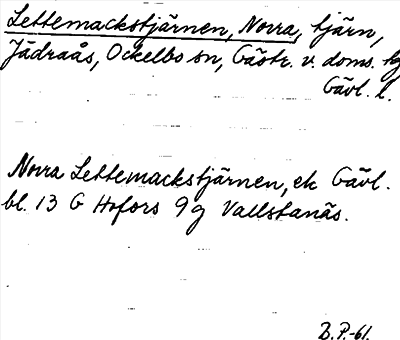 Lettemackstjärnen, Norra, tjärn,
Jädraås, Ockelbo sn, Gästr. v. doms. hg
Gävl. l.
Norra Lettemackstjärnen, ek Gävl.
bl. 13 G Hofors 9 g Vallstanäs.
B.P.-61.